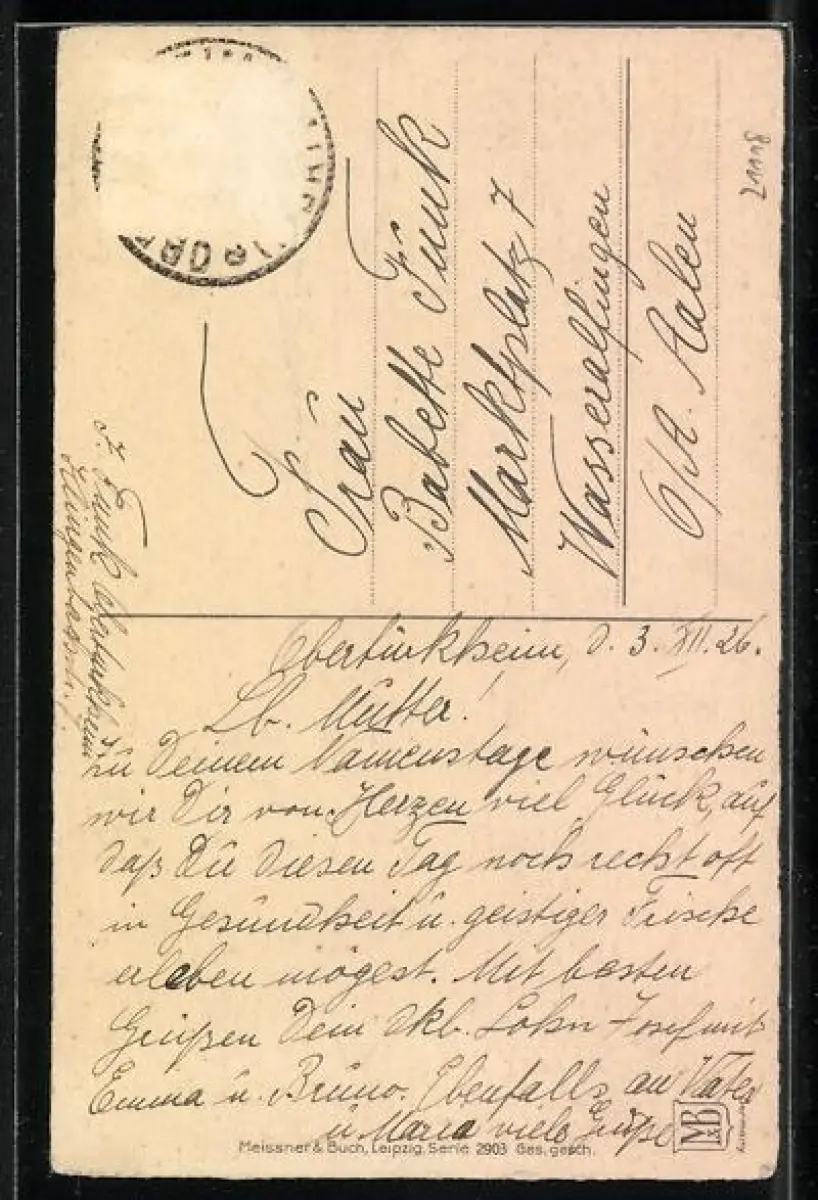 Frau
Babette Funk
Marktplatz 7
Wasseralfingen
O/A. Aalen
J. Funk Obertürkheim
Obertürkheim, d. 3. XII. 26.
Lb. Mutter!
Zu Deinem Namenstage wünschen
wir Dir von Herzen viel Glück, auf
daß Du diesen Tag noch recht oft
in Gesundheit u. geistiger Frische
erleben mögest. Mit besten
Grüßen Dein dkb. Sohn Josef mit
Emma u. Bruno. Ebenfalls an Vater
u. Maria viele Grüße
Meissner & Buch, Leipzig. Serie 2903 Ges. gesch.
M&B